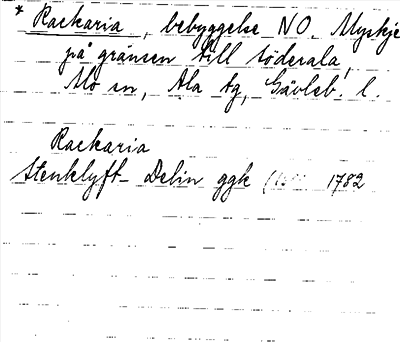 * Rackaria, bebyggelse NO. Myskje
på gränsen till Söderala,
Mo sn, Ala tg, Gävleb. l.
Rackaria
Stenklyft - Delin ggk ( 1782